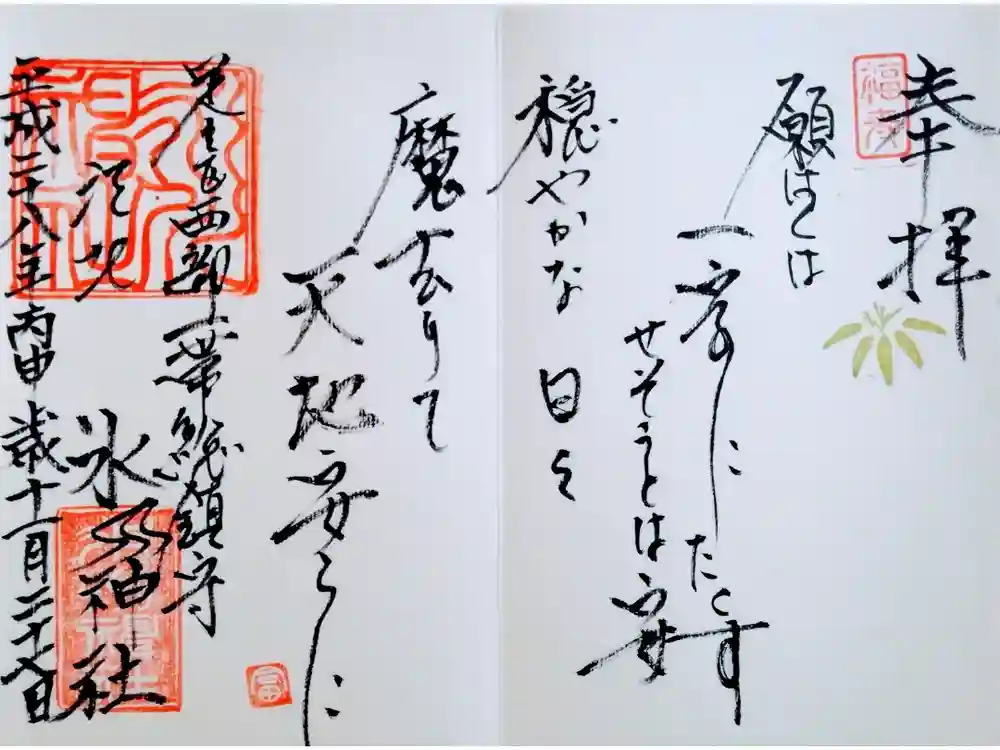 奉拝
願はくは
一宇に
たくす
穏やかな日々
魔去りて
天地安らに
足立区西部一帯総鎮守
江北
氷川神社
平成二十八年丙申歳十一月二十七日